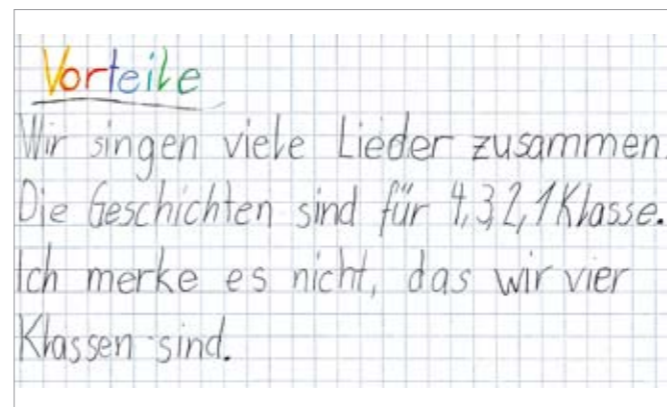 Vorteile
Wir singen viele Lieder zusammen.
Die Geschichten sind für 4,3,2,1 Klasse.
Ich merke es nicht, das wir vier
Klassen sind.